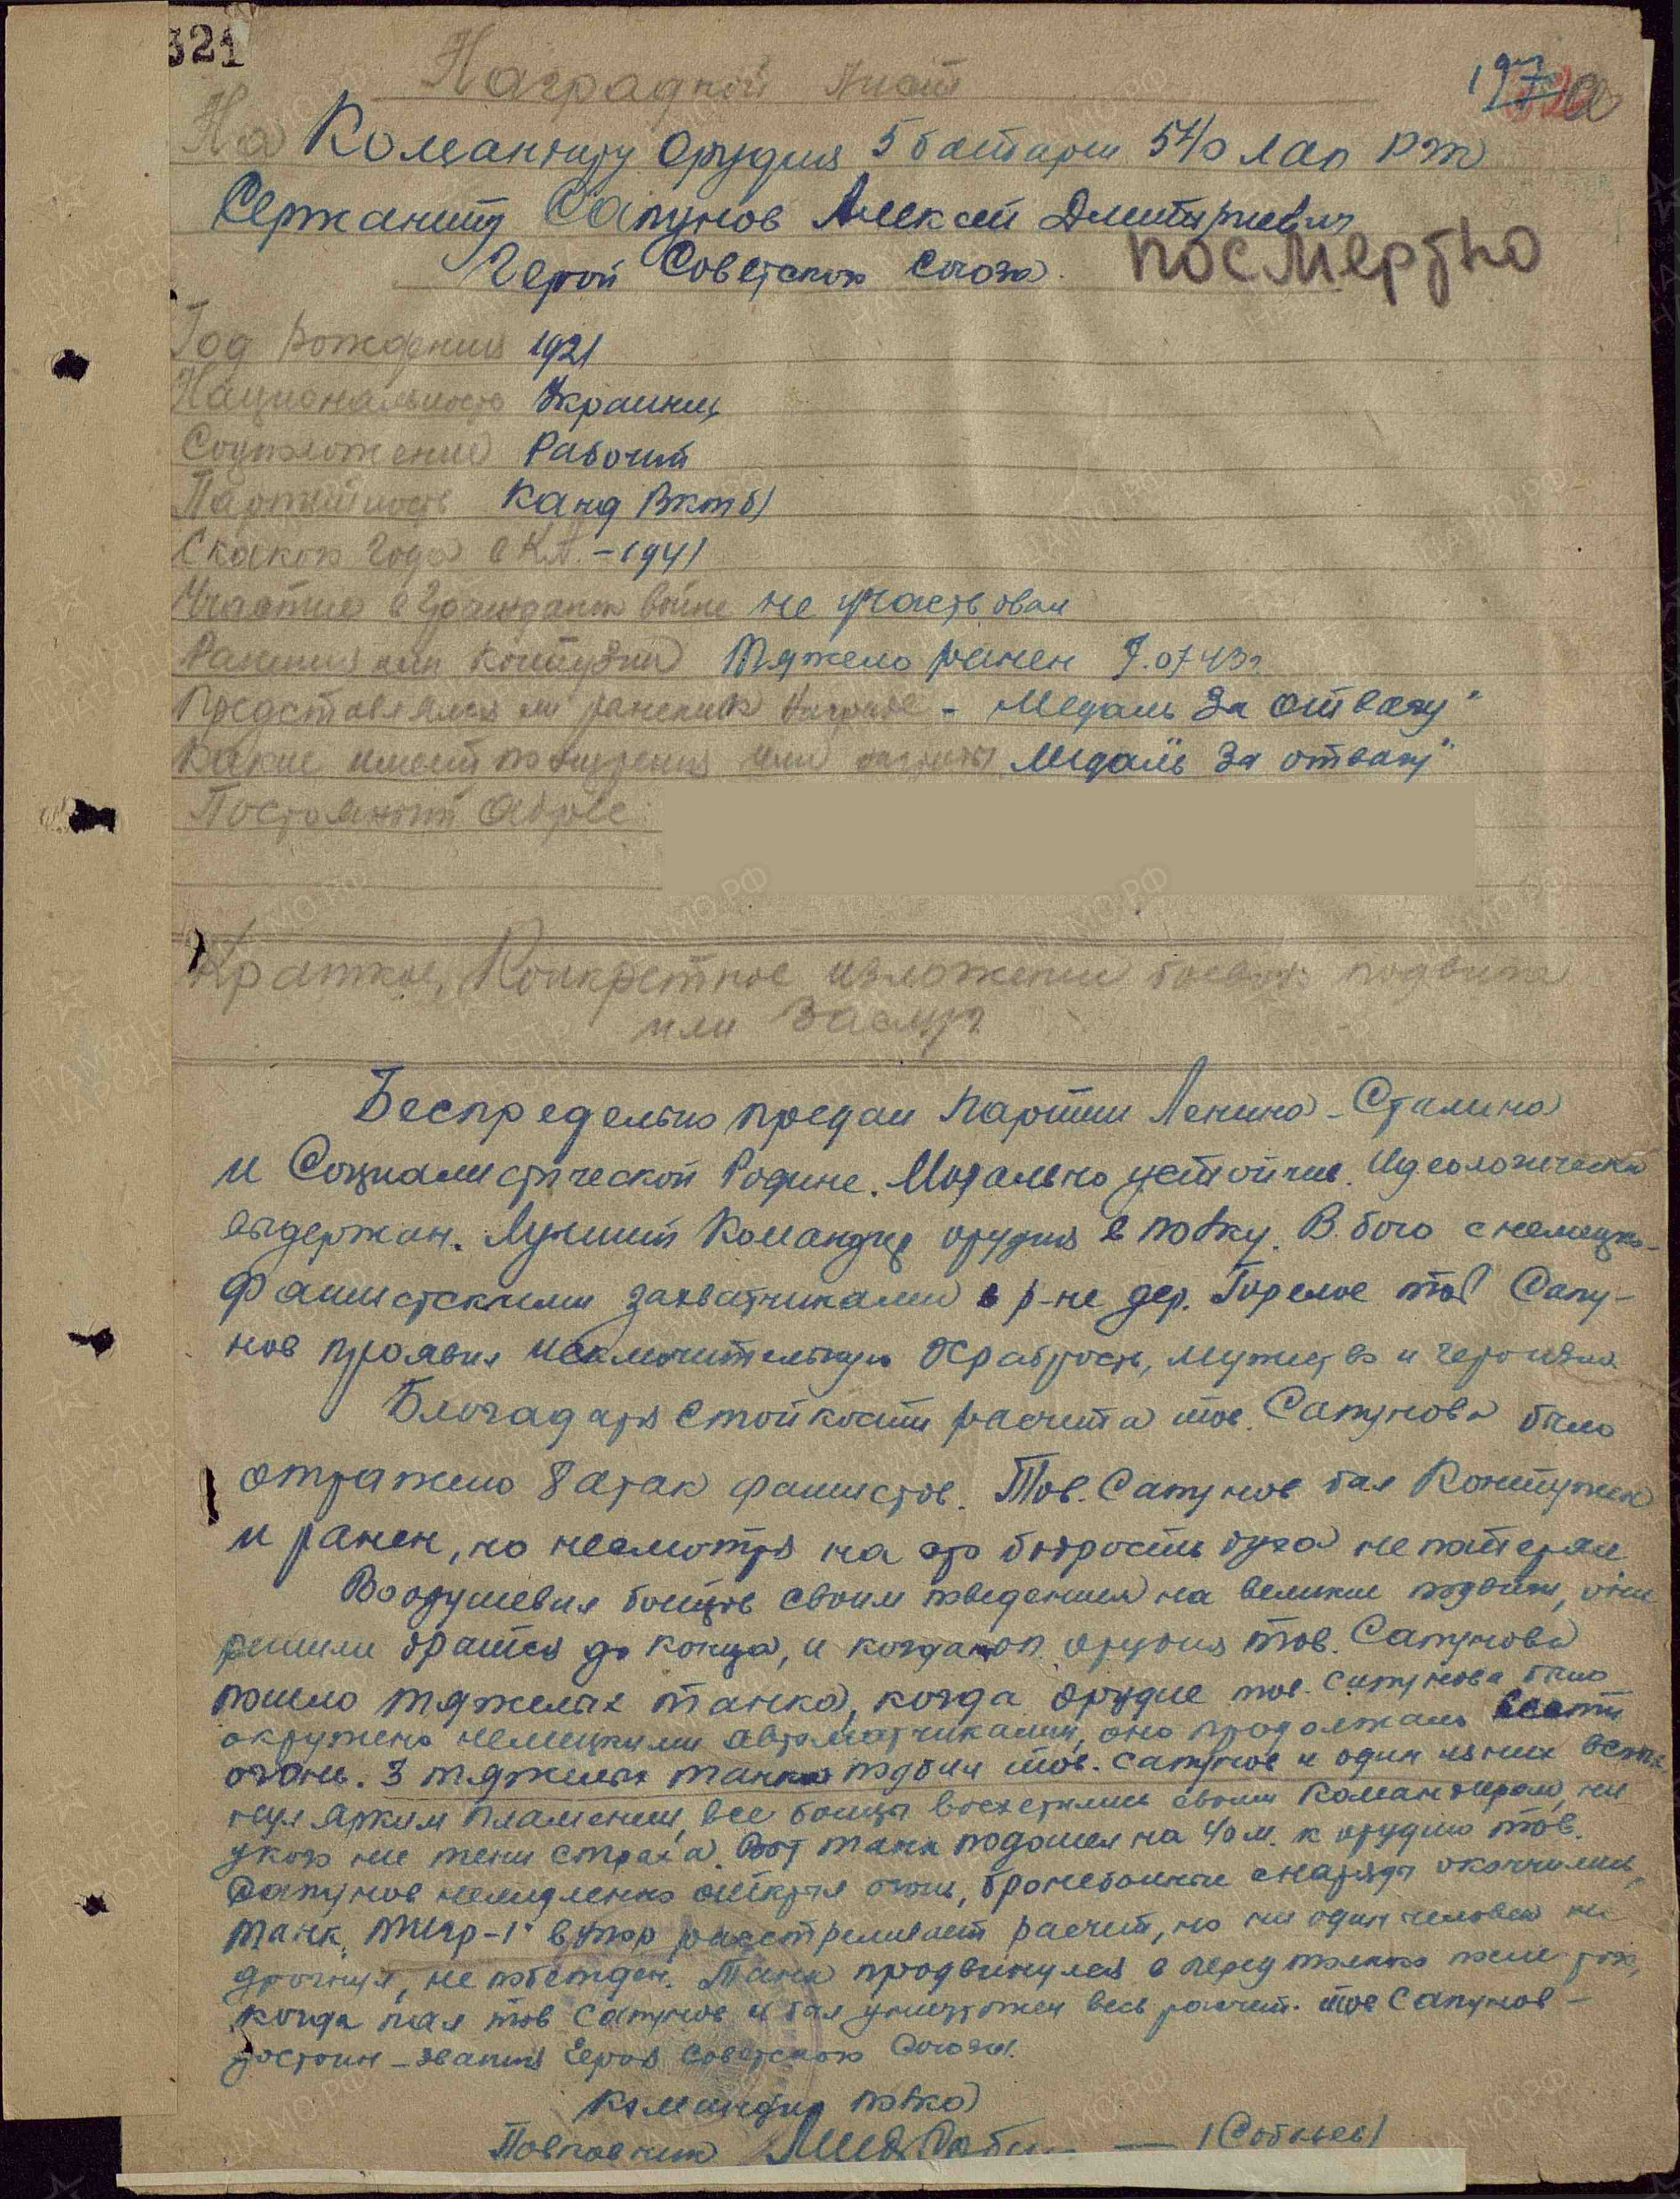 321
Наградной лист
На Командиру Орудия 5 батареи 540 лап РГК
Сержанту Сапунов Алексей Дмитриевич
Герой Советского Союза. посмертно
Год рождения 1921
Национальность Украинец
Соцположение Рабочий
Партийность Канд ВКПб)
С какого года в КА. - 1941
Участие в гражданск войне не участвовал
Ранения или контузии Тяжело ранен 7.07 43г.
Представлялся ли ранее к награде - Медаль За отвагу"
Какие имеет поощрения или награды Медаль "За отвагу"
Постоянный Адрес
Краткое, Конкретное изложение боевого подвига
или заслуг
Беспредельно предан Партии Ленина - Сталина
и Социалистической Родине. Морально устойчив. Идеологически
выдержан. Лучший Командир орудия в полку. В бою с немецко-
фашистскими захватчиками в р-не дер. Горелое тов Сапу-
нов проявил исключительную Храбрость, мужество и героизм.
Благодаря стойкости расчета тов. Сапунова было
отражено 8 атак фашистов. Тов. Сапунов был Контужен
и ранен, но несмотря на это бодрость духа не потерял
Воодушевил бойцов своим поведением на великие подвиги, они
решили драться до конца, и когда орудия тов. Сапунова
пошло тяжелых танка, когда орудие тов. Сапунова было
окружено немецкими автоматчиками, оно продолжало вести
огонь. 3 тяжелых танка подбил тов. Сапунов и один из них вспых-
нул ярким пламенем, все бойцы восхетились своим командиром, ни
у кого не тени страха. Вот танк подошел на 40 м. к орудию тов.
Сапунов немедленно открыл огонь, бронебойные снаряды окончились,
танк "Тигр-1" в упор расстреливает расчет, но ни один человек не
дрогнул, не побежден. Танк продвинулся в перед только после того,
когда пал тов Сапунов и был уничтожен весь расчет. тов Сапунов -
достоин - звания Героя Советского Союза.
Командир полка
Полковник